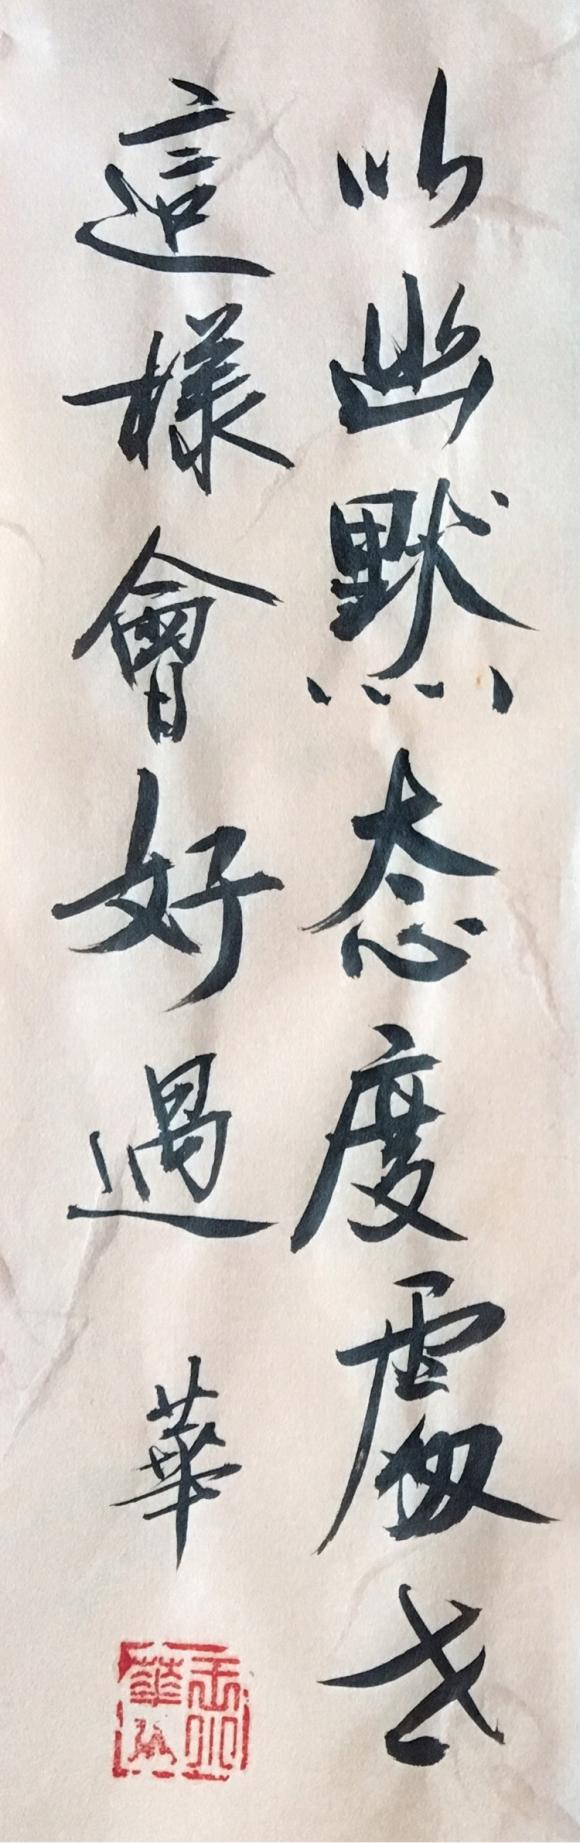 以幽默态度處世
這樣會好過
華